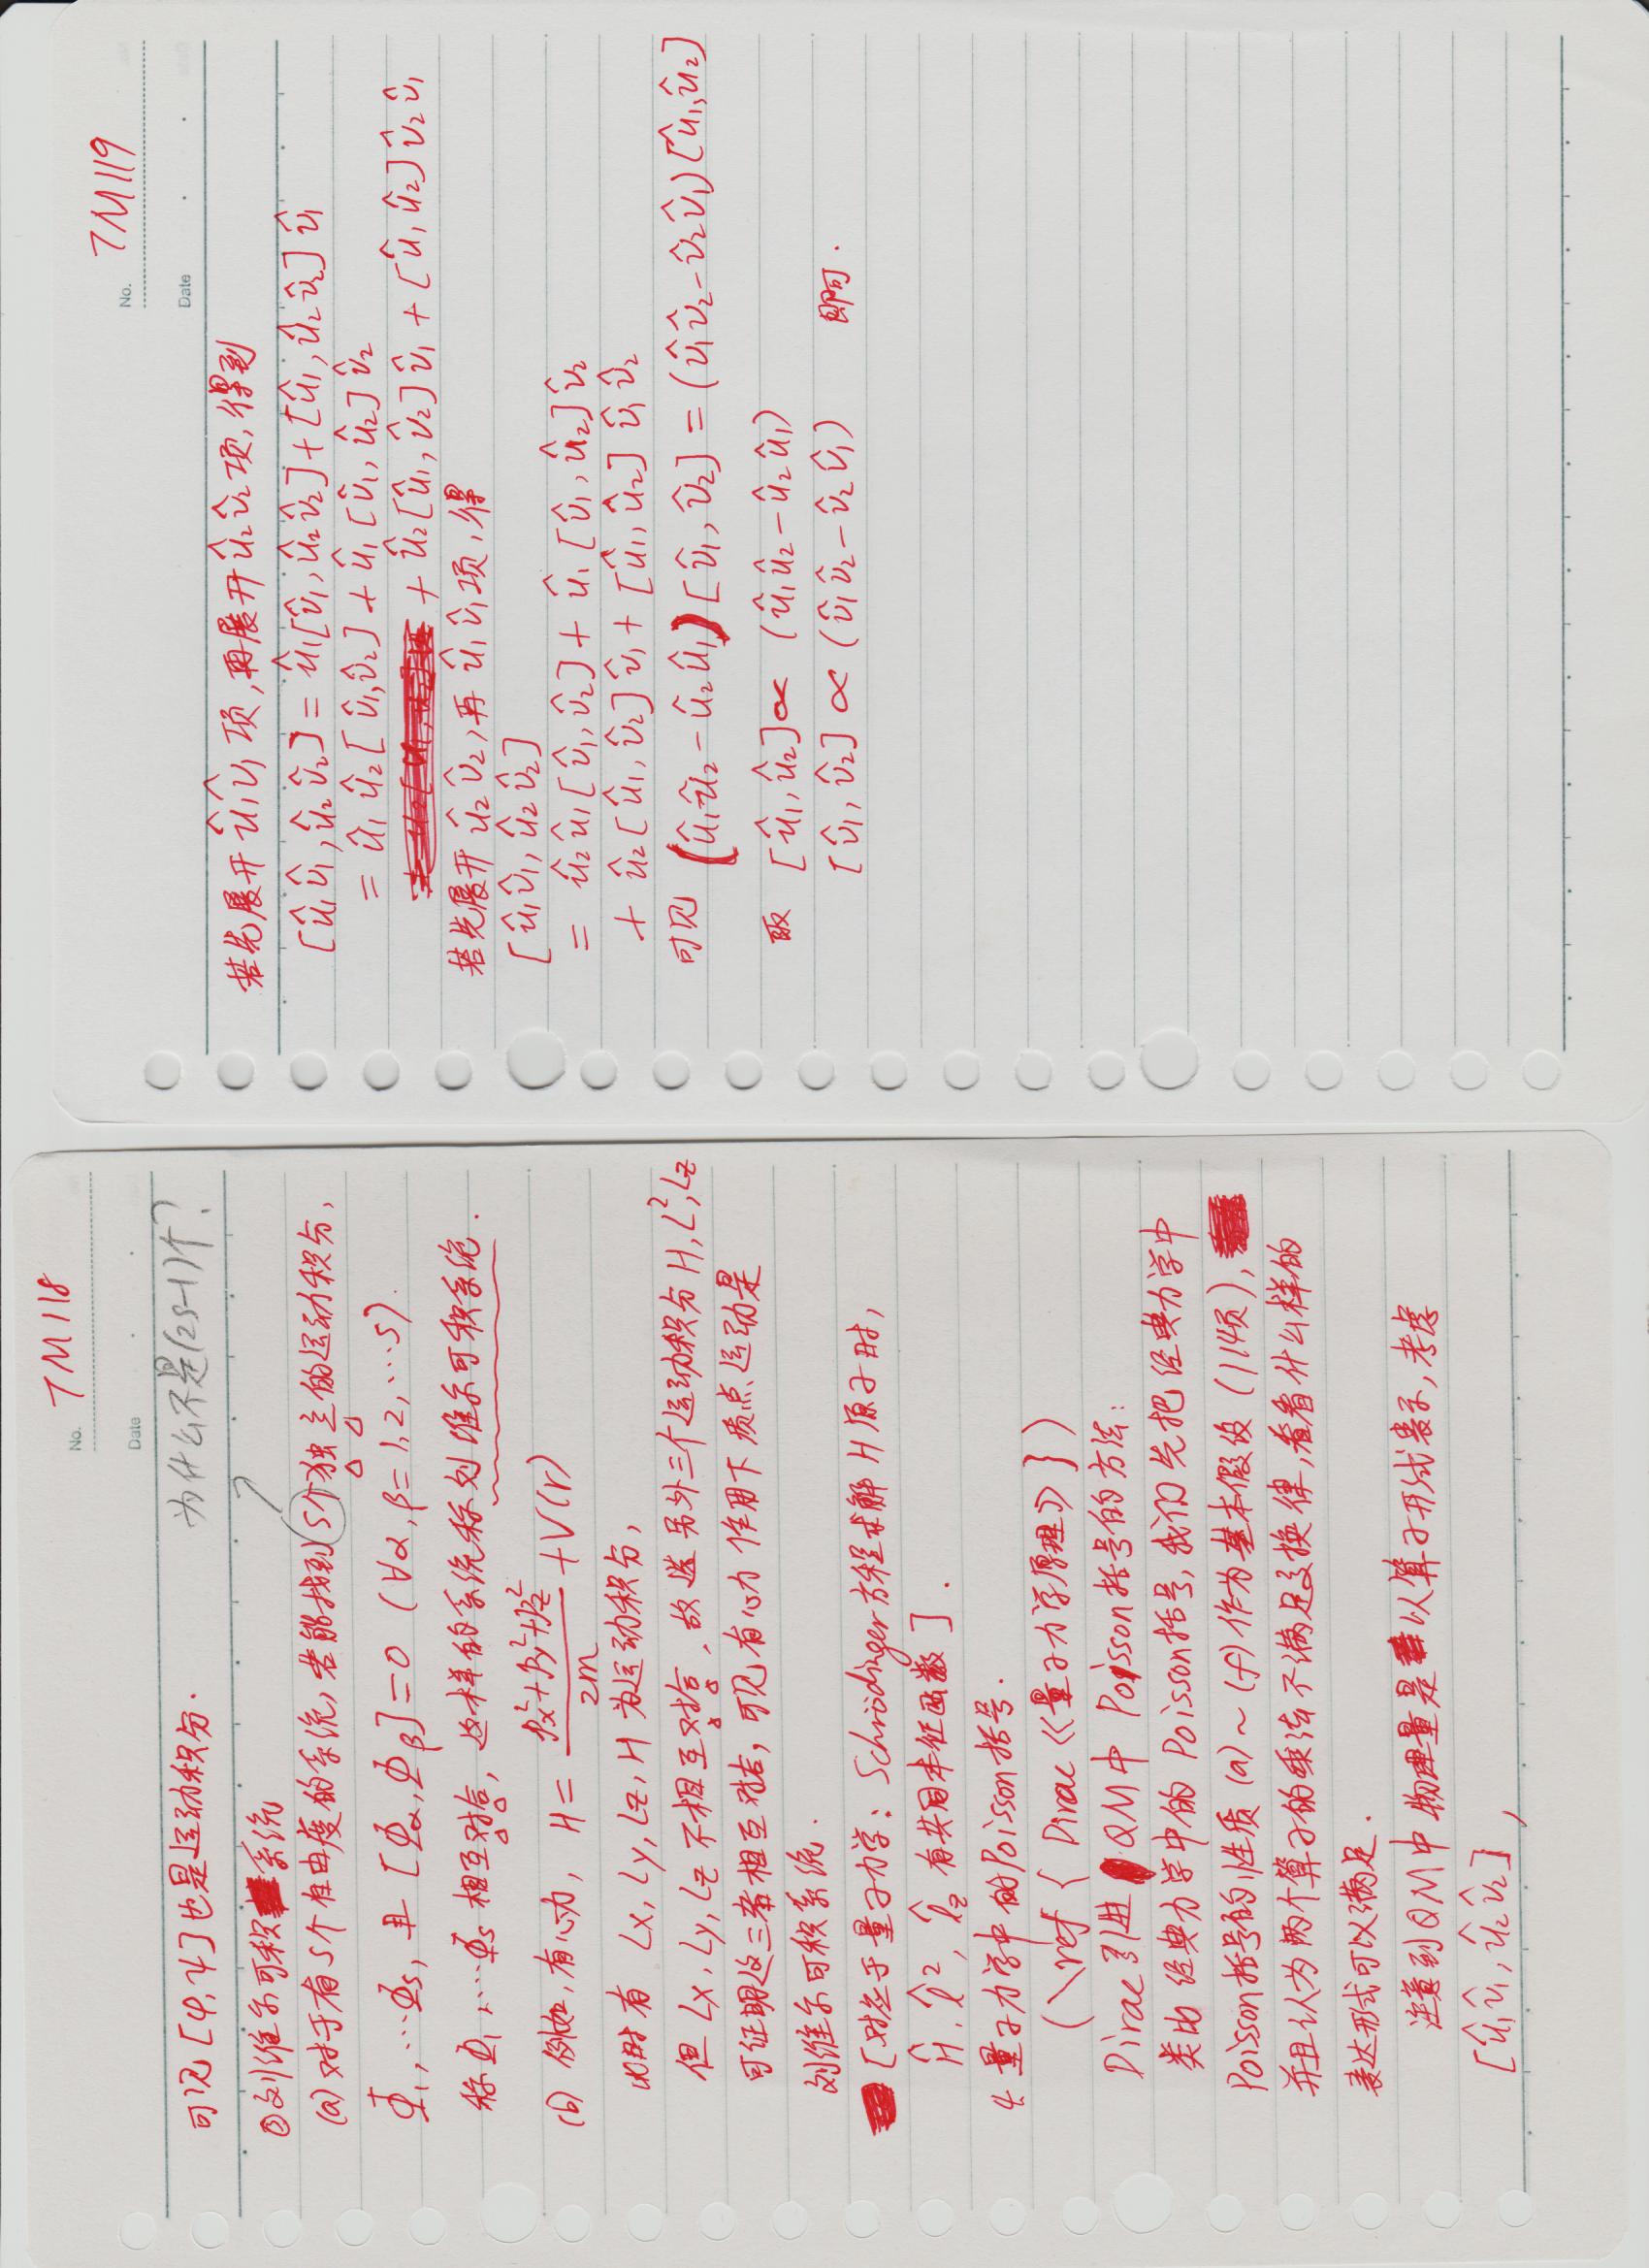 No. TM118
Date
可见[φ,ψ]也是运动积分.
为什么不是(2s-1)个?
②刘维尔可积系统
(a) 对于有s个自由度的系统,若能找到s个独立的运动积分,
Φ₁,…Φs, 且 [Φα,Φβ]=0 (∀α,β=1,2,…s).
称Φ₁,…Φs 相互对合, 这样的系统称刘维尔可积系统.
(b) 例如,有心力, H = (px²+py²+pz²)/2m + V(r)
此时有 Lx, Ly, Lz, H 为运动积分,
但 Lx, Ly, Lz 不相互对合, 故选另外三个运动积分 H, L², Lz
可证明这三者相互对合, 可见有心力作用下质点运动是
刘维尔可积系统.
[对应于量子力学: Schrödinger方程求解 H 原子时,
Ĥ, l̂², l̂z 有共同本征函数].
4. 量子力学中的Poisson括号.
(\ref { Dirac《量子力学原理》})
Dirac引进 QM中 Poisson括号的方法:
类比经典力学中的 Poisson括号,我们先把经典力学中
Poisson括号的性质 (a)~(f) 作为基本假设 (114页),
并且认为两个算子的乘法不满足交换律,看看什么样的
表达形式可以满足.
注意到QM中物理量是以算子形式表示,考虑
[û₁v̂₁, û₂v̂₂],
No. TM119
Date
若先展开 û₁v̂₁ 项,再展开 û₂v̂₂ 项,得到
[û₁v̂₁, û₂v̂₂] = û₁[v̂₁, û₂v̂₂] + [û₁, û₂v̂₂] v̂₁
= û₁û₂[v̂₁,v̂₂] + û₁[v̂₁,û₂]v̂₂
+ û₂[û₁,v̂₂]v̂₁ + [û₁,û₂]v̂₂v̂₁
若先展开 û₂v̂₂,再 û₁v̂₁项,得
[û₁v̂₁, û₂v̂₂]
= û₂û₁[v̂₁,v̂₂] + û₁[v̂₁,û₂]v̂₂
+ û₂[û₁,v̂₂]v̂₁ + [û₁,û₂]v̂₁v̂₂
可见 (û₁û₂ - û₂û₁)[v̂₁,v̂₂] = (v̂₁v̂₂ - v̂₂v̂₁)[û₁,û₂]
取 [û₁,û₂] ∝ (û₁û₂ - û₂û₁)
[v̂₁,v̂₂] ∝ (v̂₁v̂₂ - v̂₂v̂₁) 即可.